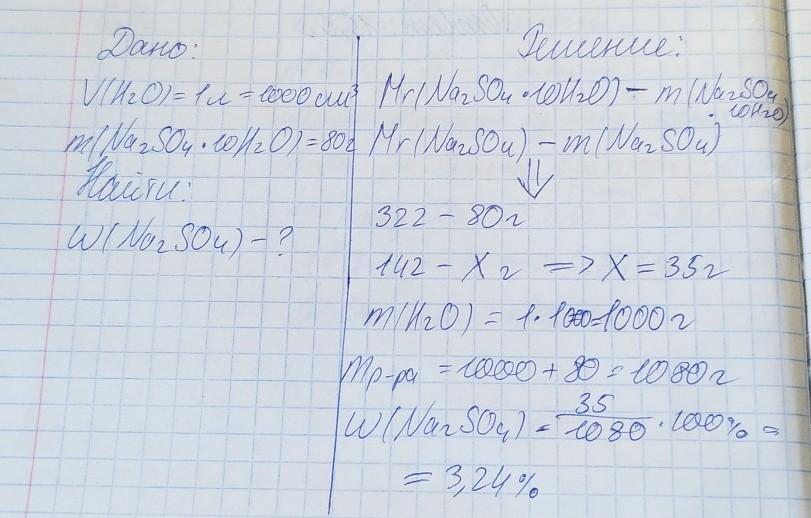 Дано:
V(H₂O) = 1л = 1000 см³
m(Na₂SO₄·10H₂O) = 80г
Найти:
W(Na₂SO₄) - ?
Решение:
Mr(Na₂SO₄·10H₂O) – m(Na₂SO₄·10H₂O)
Mr(Na₂SO₄) – m(Na₂SO₄)
⇓
322 – 80г
142 – X г => X = 35г
m(H₂O) = 1·1000=1000г
mр-ра = 1000 + 80 = 1080г
W(Na₂SO₄) = 35/1080 · 100% =
= 3,24%